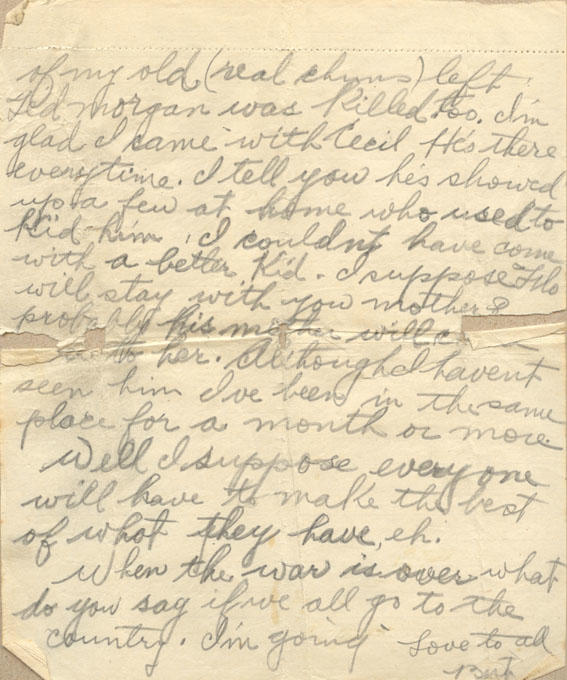 of my old (real chums) left.
Ted Morgan was killed too. I'm
glad I came with Cecil He's there
everytime. I tell you hes showed
up a few at home who used to
kid him, I couldn't have come
with a better kid. I suppose Flo
will stay with you mother &
probably his mother will
to her. Although I havent
seen him I've been in the same
place for a month or more
Well I suppose every one
will have to make the best
of what they have, eh.
When the war is over what
do you say if we all go to the
country. I'm going Love to all
Bert